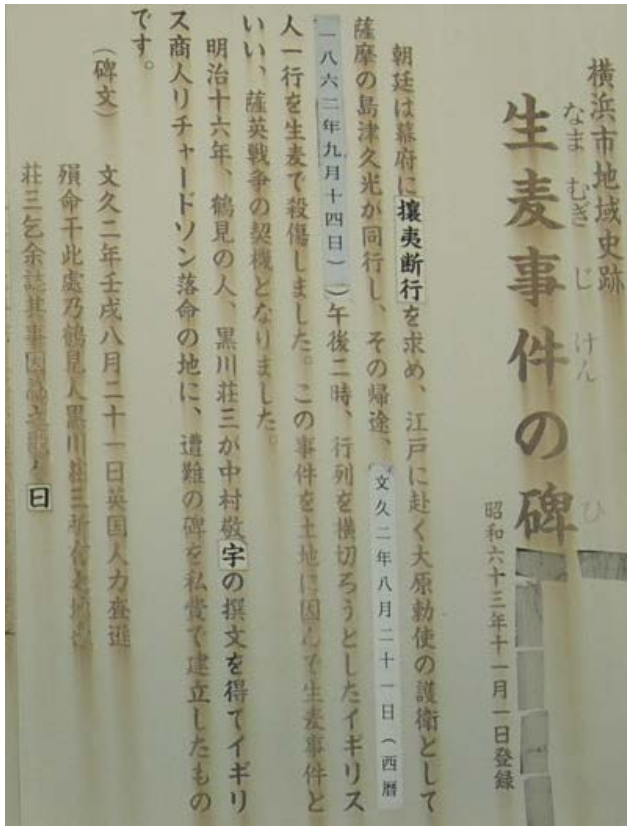 横浜市地域史跡
なまむぎじけん ひ
生麦事件の碑
昭和六十三年十一月一日登録
朝廷は幕府に攘夷断行を求め、江戸に赴く大原勅使の護衛として
薩摩の島津久光が同行し、その帰途、文久二年八月二十一日(西暦
一八六二年九月十四日))午後二時、行列を横切ろうとしたイギリス
人一行を生麦で殺傷しました。この事件を土地に因んで生麦事件と
いい、薩英戦争の契機となりました。
明治十六年、鶴見の人、黒川荘三が中村敬宇の撰文を得てイギリ
ス商人リチャードソン落命の地に、遭難の碑を私費で建立したもの
です。
(碑文) 文久二年壬戌八月二十一日英国人力査遜
殞命干此處乃鶴見人黒川荘三所有之地也
荘三乞余誌其事因為之歌 曰